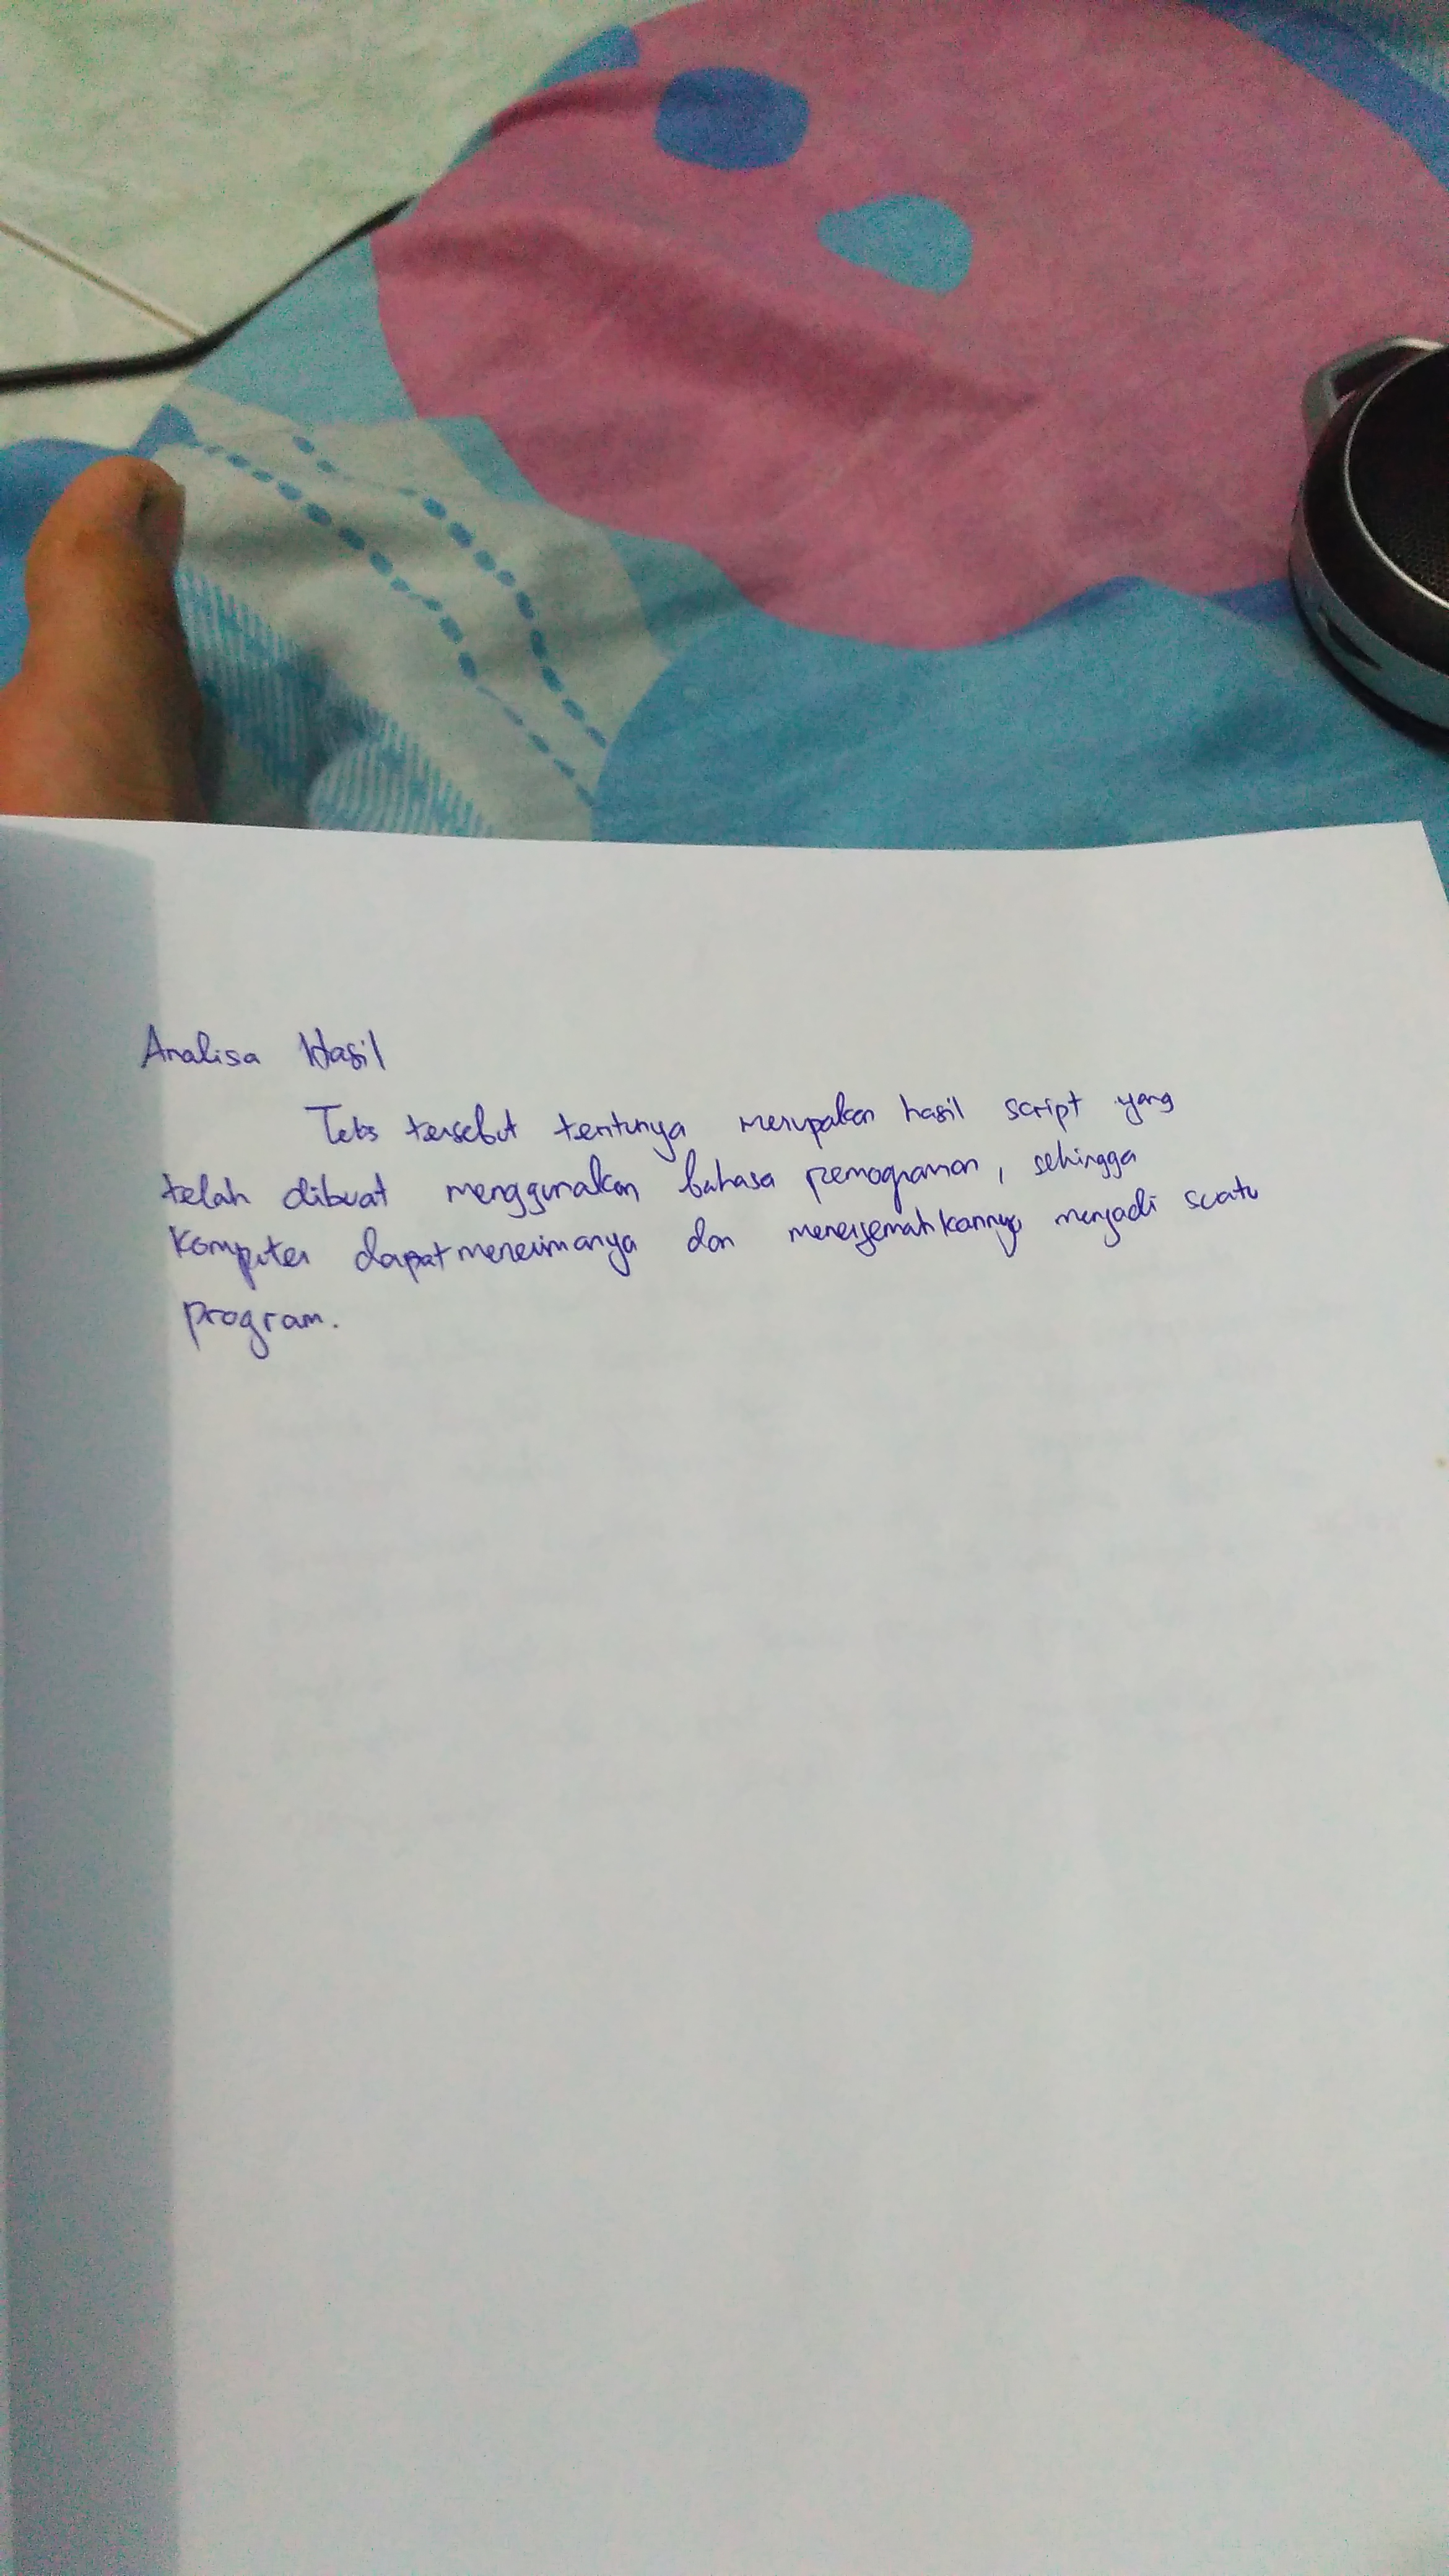 Analisa Hasil
Teks tersebut tentunya merupakan hasil script yang
telah dibuat menggunakan bahasa pemograman, sehingga
Komputer dapat menerimanya dan menerjemahkannya menjadi suatu
program.